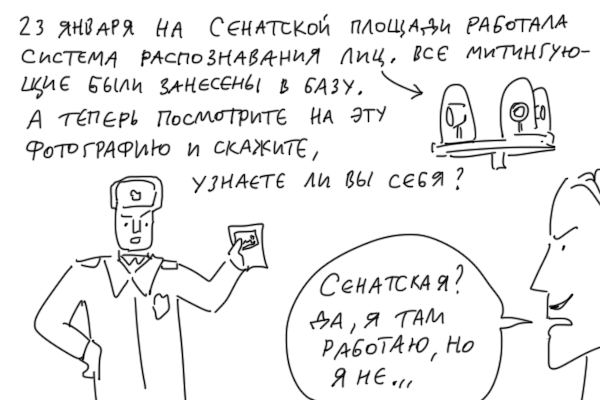 23 ЯНВАРЯ НА СЕНАТСКОЙ ПЛОЩАДИ РАБОТАЛА
СИСТЕМА РАСПОЗНАВАНИЯ ЛИЦ. ВСЕ МИТИНГУЮ-
ЩИЕ БЫЛИ ЗАНЕСЕНЫ В БАЗУ.
А ТЕПЕРЬ ПОСМОТРИТЕ НА ЭТУ
ФОТОГРАФИЮ И СКАЖИТЕ,
УЗНАЕТЕ ЛИ ВЫ СЕБЯ?
СЕНАТСКАЯ?
ДА, Я ТАМ
РАБОТАЮ, НО
Я НЕ...